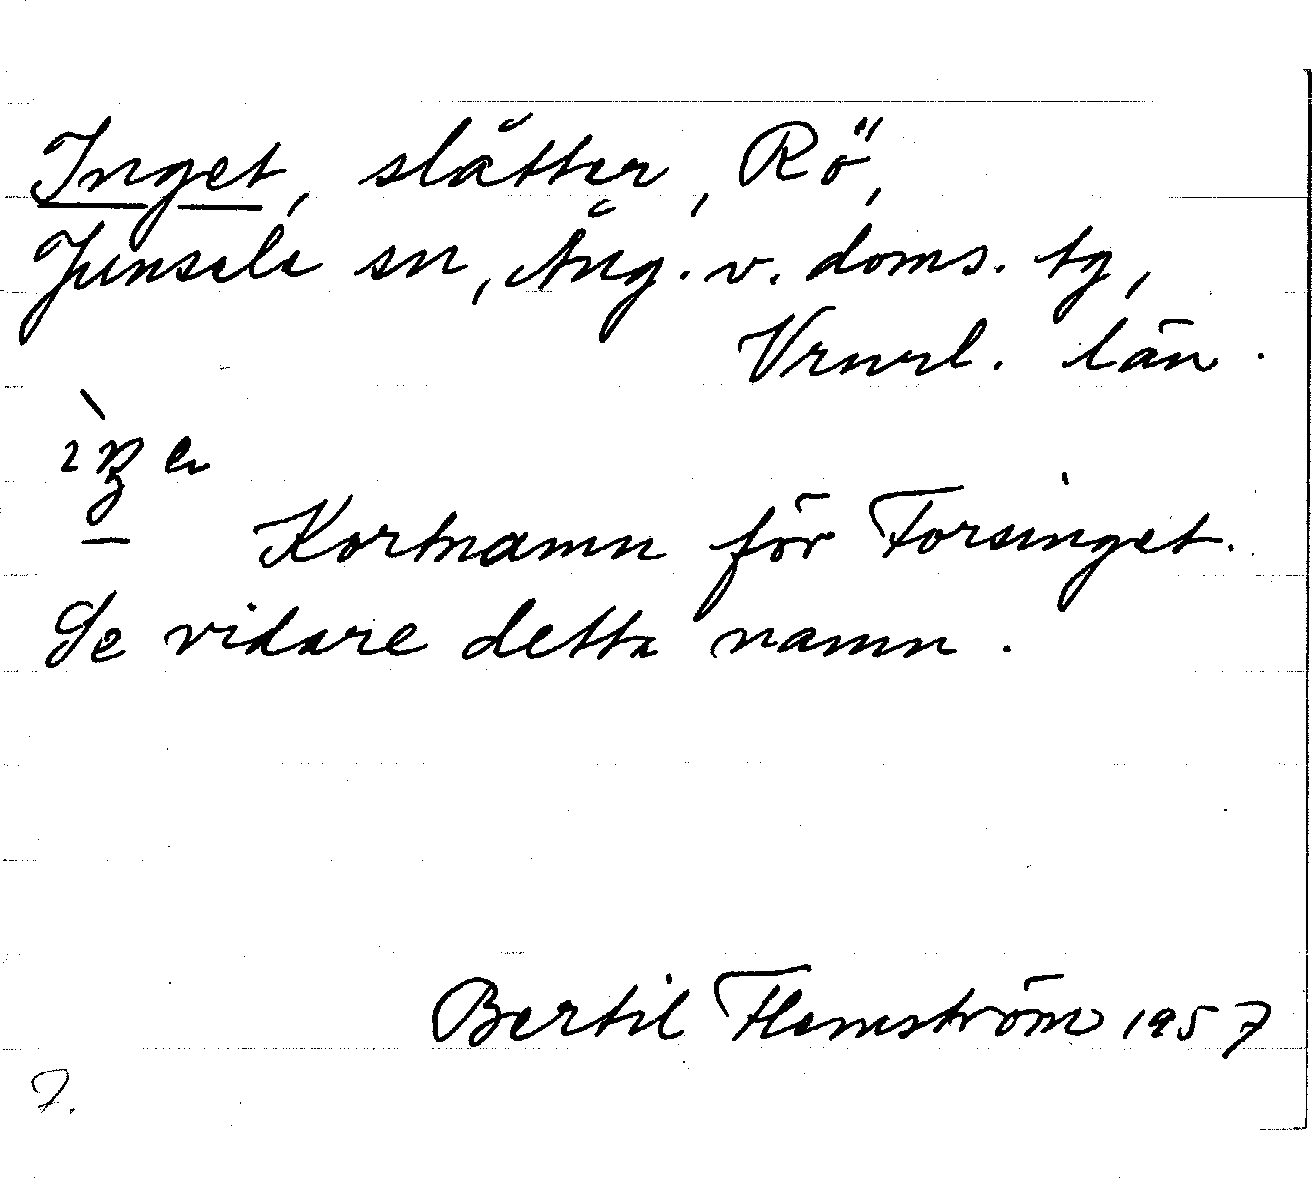 Inget, slåtter, Rö,
Junsele sn, Ång. v. doms. tg,
Vrnrl. län.
Kortnamn för Forsinget.
Se vidare detta namn.
Bertil Flemström 1957
7.